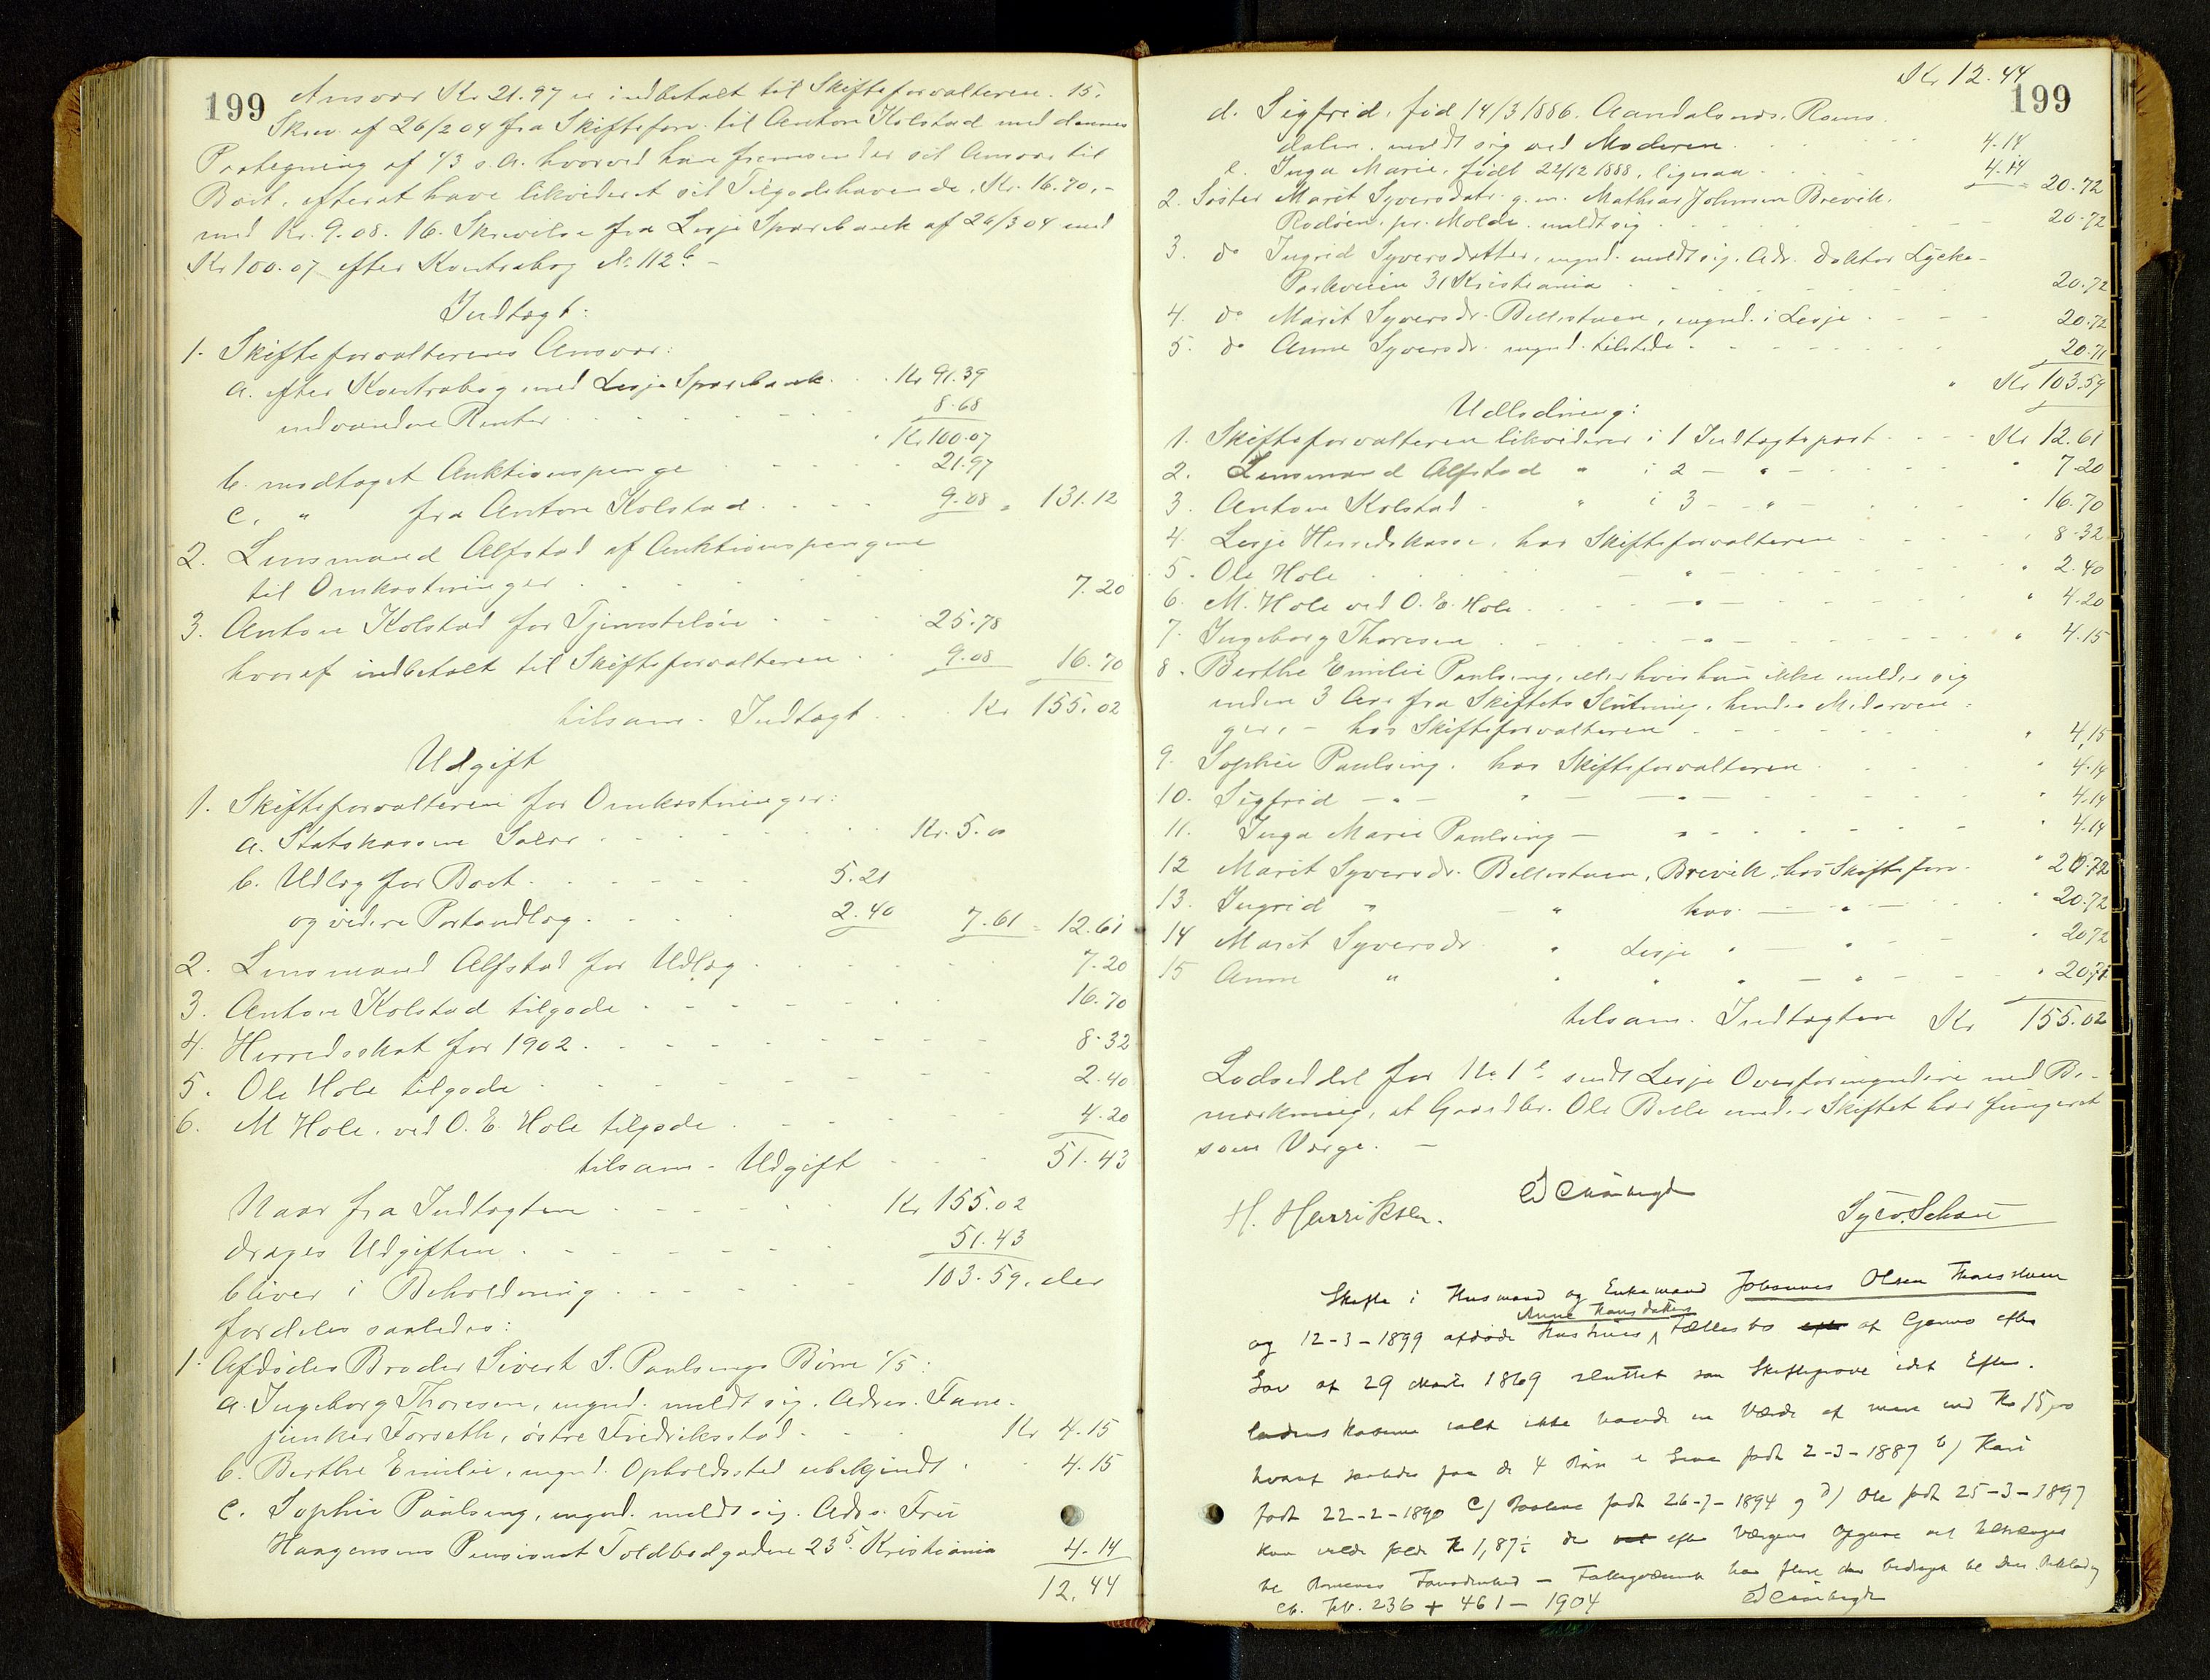 199
Ansvar Kr 21.97 er indbetalt til Skifteforvalteren. 15.
Skriv. af 26/2 04 fra Skifteforv. til Anton Kolstad med dennes
Paategning af 1/3 s.A. hvorved han fremsender sit Ansvar til
Boet, efterat have likvideret sit Tilgodehavende, Kr. 16.70,-
med Kr. 9.08. 16. Skrivelse fra Lesje Sparebank af 26/3 04 med
Kr 100.07 efter Kontrabog No 112 b. -
Indtægt:
1. Skifteforvalterens Ansvar:
a. efter Kontrabog med Lesje Sparebank. . . Kr 91.39
indvundne Renter . . . 8.68
Kr 100.07
b. modtaget Auktionspenge . . . 21.97
c. " fra Anton Kolstad . . . 9.08 = 131.12
2. Lensmand Alfstad af Auktionspengene
til Omkostninger . . . 7.20
3. Anton Kolstad for Tjenesteløn . . . 25.78
hvoraf indbetalt til Skifteforvalteren . . 9.08 16.70
tilsam. Indtægt . . . Kr 155.02
Udgift
1. Skifteforvalteren for Omkostninger:
a. Statskassens Salær . . . Kr. 5.00
b. Udlæg for Boet . . . 5.21
og videre Portoudlæg . . . 2.40 7.61 = 12.61
2. Lensmand Alfstad for Udlæg . . . 7.20
3. Anton Kolstad tilgode . . . 16.70
4. Herredsskat for 1902 . . . 8.32
5. Ole Hole tilgode . . . 2.40
6. M Hole, ved O. E. Hole tilgode . . . 4.20
tilsam. Udgift . . . 51.43
Naar fra Indtægten . . . Kr 155.02
drages Udgiften . . . 51.43
bliver i Beholdning . . . 103.59, der
fordeles saaledes:
1. Afdødes Broder Sivert S. Paulsings Børn 1/5:
a. Ingeborg Thoresen, mynd. meldt sig. Adres. Fane-
junker Forseth, østre Fredriksstad . . . Kr 4.15
b. Berthe Emilie, mynd. Opholdssted ubekjendt . . 4.15
c. Sophie Paulsing, mynd. meldt sig. Adrs. Frü
Haagensens Pensionat Toldbodgaden 23 5. Kristiania 4.14
12,44
Kr 12.44
199
d. Sigfrid, fød 14/3 1886. Aandalsnæs, Roms-
dalen. meldt sig ved Moderen . . . 4.14
e. Inga Marie, født 22/12 1888, ligesaa . . . 4.14 = 20.72
2. Søster Marit Syversdatr. g. m. Mathias Johnsen Brevik.
Rødøen, pr. Molde. meldt sig . . . 20.72
3. do Ingrid Syversdatter, mynd. meldt sig. Adr. Doktor Lycke-
Parkveien 31 Kristiania . . . 20.72
4. do Marit Syversdr. Bellestuen, mynd. i Lesje . . . 20.72
5. do Anne Syversdr. mynd. tilstede . . . 20.71
Kr 103.59
Udlodning:
1. Skifteforvalteren likviderer i 1 Indtægtspost . . . Kr 12.61
2. Lensmand Alfstad " i 2 - " - . . . " 7.20
3. Anton Kolstad " i 3 - " - . . . " 16.70
4. Lesje Herredskasse, hos Skifteforvalteren . . . " 8.32
5. Ole Hole . . . - " - . . . " 2.40
6. M. Hole ved O. E. Hole . . . - " - . . . " 4.20
7. Ingeborg Thoresen . . . - " - . . . " 4.15
8. Berthe Emilie Paulsing, eller hvis hun ikke melder sig
inden 3 Aar fra Skiftets Slutning, hendes Medarvin-
ger, - hos Skifteforvalteren . . . " 4,15
9. Sophie Paulsing. hos Skifteforvalteren . . . " 4.14
10. Sigfrid - " - " - " - . . . " 4.14
11. Inga Marie Paulsing - " - . . . " 4.14
12 Marit Syversdr. Bellestuen, Brevik, hos Skifteforv. " 20.72
13. Ingrid " - " hos - " - . . " 20.72
14 Marit Syversdr " Lesje " - " - " 20.72
15 Anne " " " " - " - " 20,71
tilsam. Indtægten Kr 155.02
Lodseddel for No. 1 e. sendt Lesje Overformynderi med Be-
mærkning, at Gaardbr. Ole Belle under Skiftet har fungeret
som Værge. -
H. Henriksen.
Syv. Schou
Skifte i Husmand og Enkemand Johannes Olsen
Anne Hansdatters
og 12-3-1899 afdøde Hustrues Fællesbo af efter
Lov af 29 Marts 1869 sluttet som Skifteprøve idet Efter-
ialt ikke havde en Værdi af mere end Kr 15,00
hvoraf saaledes paa de 4 Børn a født 2-3-1887 b) Kari
født 22-2-1890 c) født 26-7-1894 og d) Ole født 25-3-1897
kun vilde falde Kr 1,87 der efter Værgens Opgave
236 + 461 - 1904